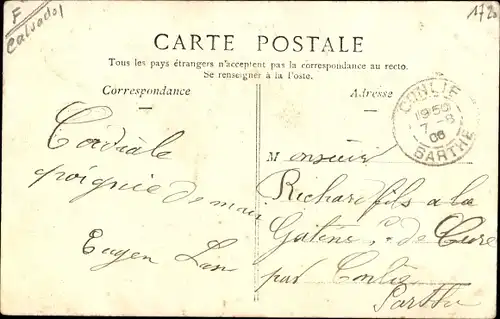 F
Calvados
172
CARTE POSTALE
Tous les pays étrangers n'acceptent pas la correspondance au recto.
Se renseigner à la Poste.
Correspondance
Adresse
CONLIE
19 50
7-8
06
SARTHE
Cordiale
poignée de main
Eugen
Monsieur
Richard fils a la
de Cure
par Conlie
Sarthe